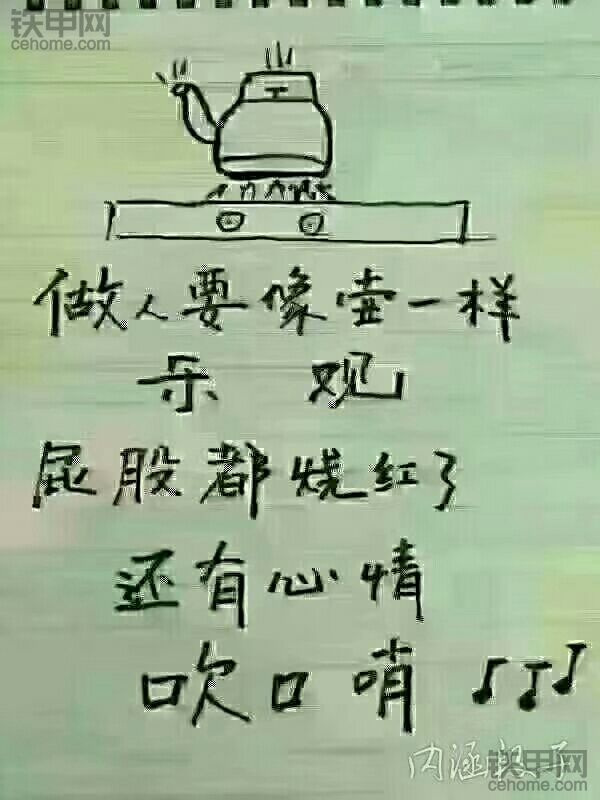 铁甲网
cehome.com
做人要像壶一样
乐观
屁股都烧红了
还有心情
吹口哨
内涵
铁甲网
cehome.com